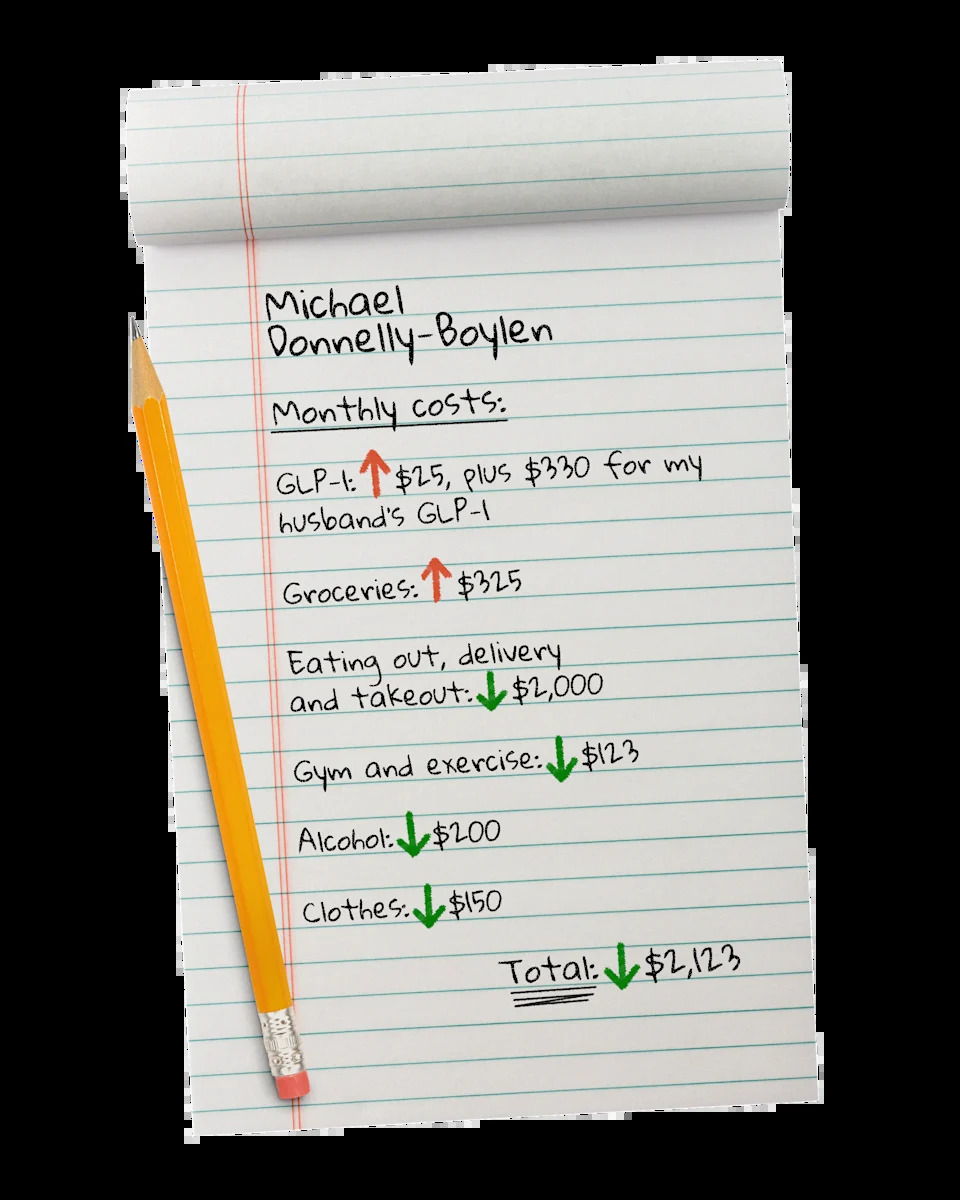 Michael
Donnelly-Boylen
Monthly costs:
GLP-1: ↑ $25, plus $330 for my
husband's GLP-1
Groceries: ↑ $325
Eating out, delivery
and takeout: ↓ $2,000
Gym and exercise: ↓ $123
Alcohol: ↓ $200
Clothes: ↓ $150
Total: ↓ $2,123